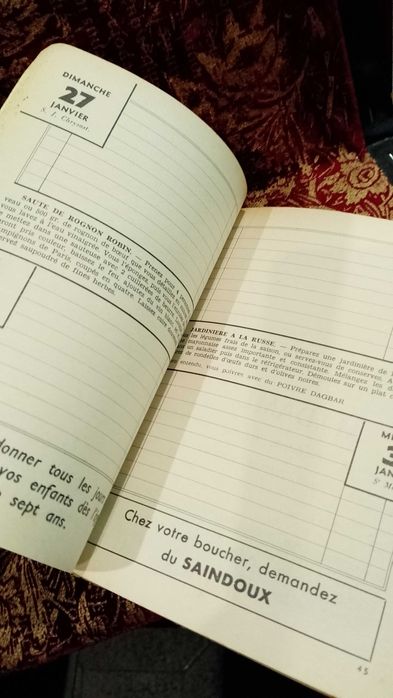 DIMANCHE
27
JANVIER
S. J. Chrysost.
SAUTE DE ROGNON ROBIN. — Prenez pour 4
veau ou 500 gr. de rognon de bœuf que vous
vous lavez à l'eau vinaigrée. Vous l'épongez, puis vous
mettez dans une sauteuse avec 2 cuillerées
ront pris couleur, baissez le feu, ajoutez
mpignons de Paris coupés en quatre. Laissez cuire
servez saupoudré de fines herbes.
donner tous les jours
vos enfants dès l'
sept ans.
JARDINIERE A LA RUSSE. — Préparez une jardinière de
les légumes frais de la saison, ou servez-vous de conserves.
mayonnaise assez importante et consistante. Mélangez les
un saladier puis dans le réfrigérateur. Démoulez sur un plat
de rondelles d'œufs durs et d'olives noires.
entendu, vous poivrez avec du POIVRE DAGBAR
ME
3
JAN
Ste M
Chez votre boucher, demandez
du SAINDOUX
45